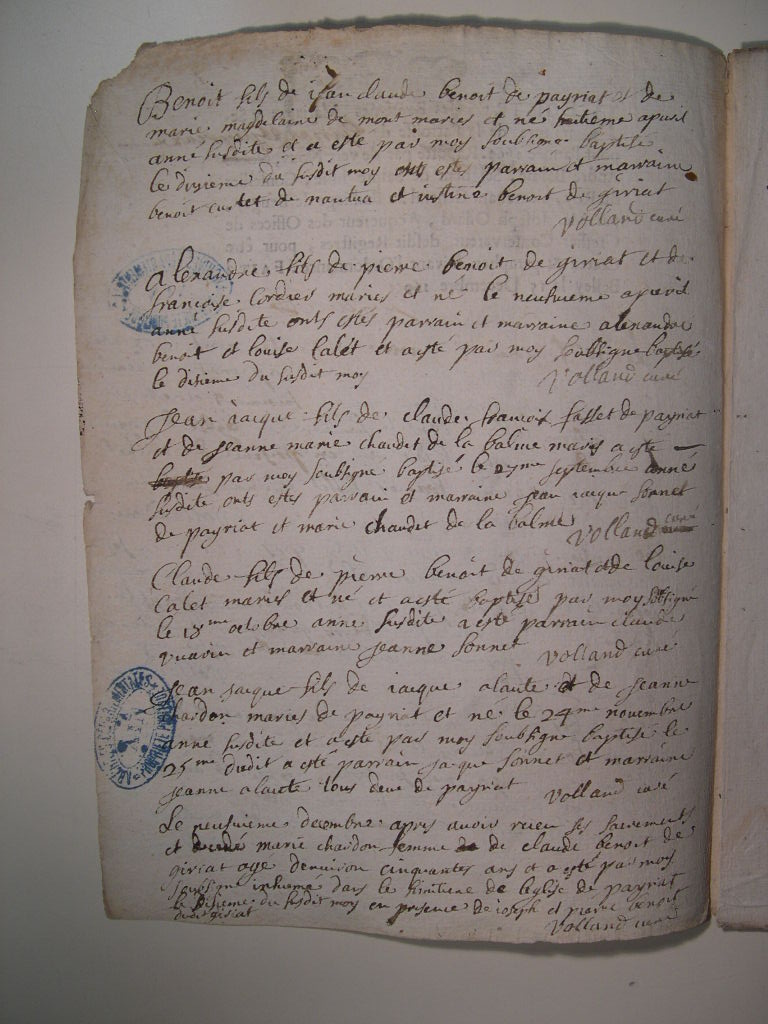 Benoit fils de jean claude benoit de payriat et de
marie magdelaine de mont maries et né huitieme apvril
anné susdite et a esté par moy soubsigne baptise
le dixieme du susdit moy onts estes parrain et marraine
benoit curtet de nantua et iustine benoit de giriat
Volland curé
alexandre fils de pierre benoit de giriat et de
francoise Cordier maries et né le neufvieme apvril
anné susdite onts estés parrain et marraine alexandre
benoit et louise Calet et a esté par moy soubsigne baptisé
le disieme du susdit moy Volland curé
Jean iacque fils de claude francois fasset de payriat
et de Jeanne marie chaudet de la balme maries a este
par moy soubsigne baptisé le 27me septembre anné
susdite onts estes parrain et marraine jean iacque sonnet
de payriat et marie chaudet de la balme Volland curé
Claude fils de pierre benoit de giriat et de louise
Calet maries et né et a esté baptisé par moy soubsigne
le 18me octobre anne susdite a esté parrain claude
et marraine jeanne sonnet Volland curé
Jean jacque fils de iacque alaite et de Jeanne
chardon maries de payriat et né le 24me novembre
anne susdite et a este par moy soubsigne baptise le
25me dudit a esté parrain jaque sonnet et marraine
jeanne alaite tous deux de payriat Volland curé
Le neufvieme decembre apres avoir receu ses sacrements
et marie chardon femme de claude benoit de
giriat agé denviron cinquantes ans et a esté par moy
soubsigne inhumé dans le simitiere de leglise de payriat
le disieme du susdit moy en presence de ioseph et pierre benoit
dudit giriat Volland curé